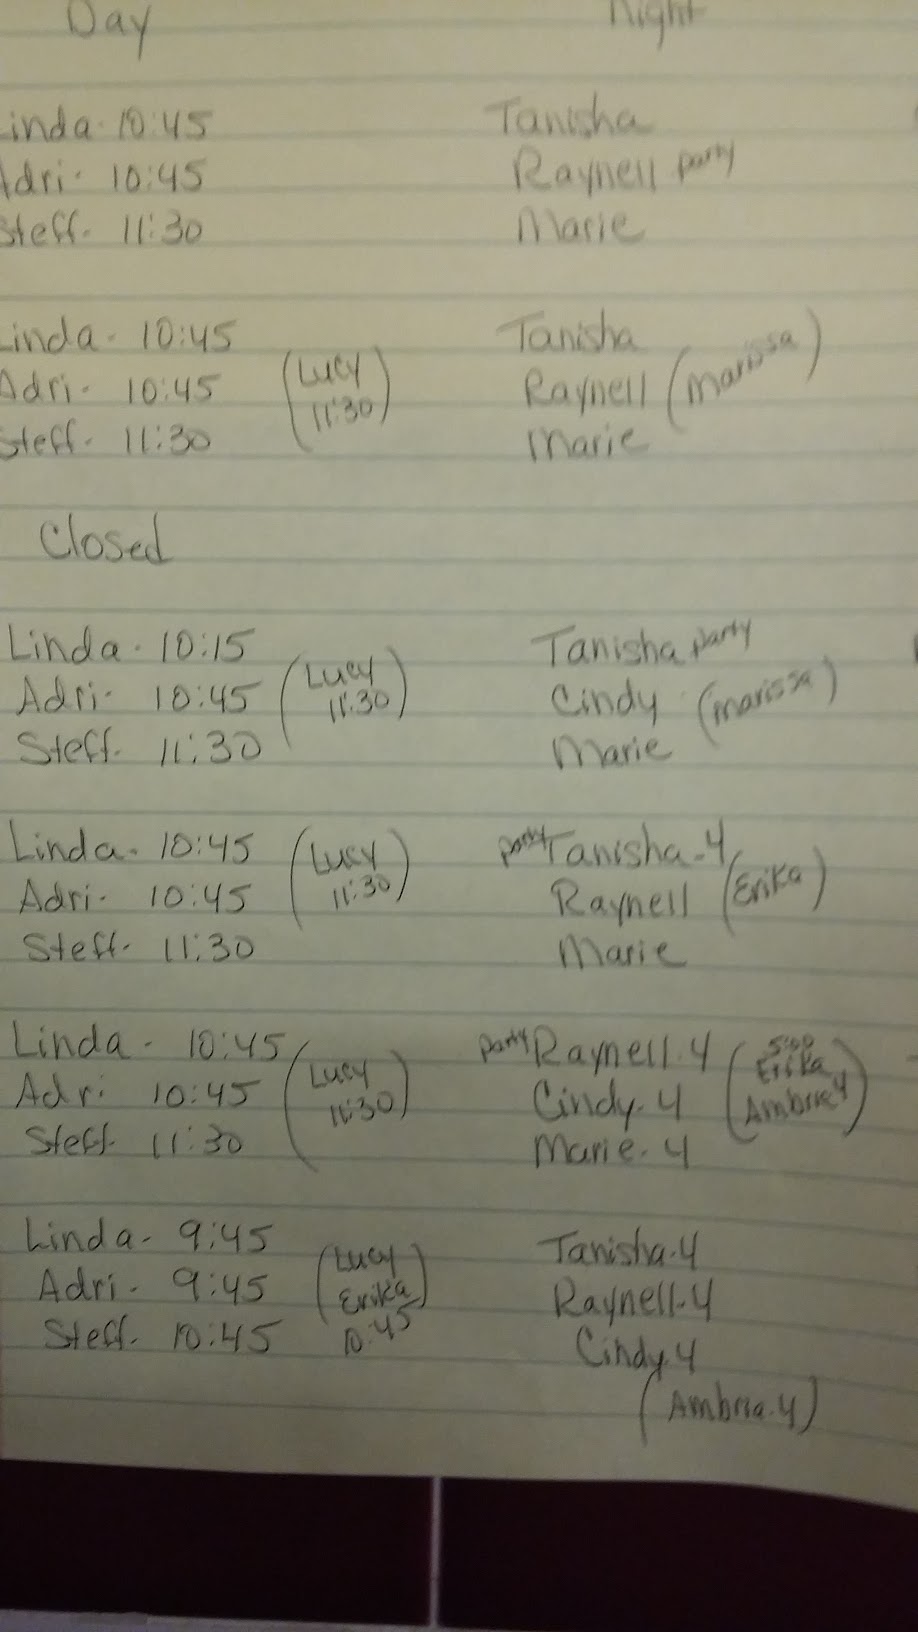 Day Night
Linda- 10:45 Tanisha
Adri- 10:45 Raynell party
Steff- 11:30 Marie
Linda- 10:45 Tanisha
Adri- 10:45 (Lucy 11:30) Raynell (Marissa)
Steff- 11:30 Marie
Closed
Linda- 10:15 Tanisha party
Adri- 10:45 (Lucy 11:30) Cindy (Marissa)
Steff- 11:30 Marie
Linda- 10:45 party Tanisha-4
Adri- 10:45 (Lucy 11:30) Raynell (Erika)
Steff- 11:30 Marie
Linda- 10:45 party Raynell-4 (5:00 Erika
Adri 10:45 (Lucy 11:30) Cindy-4 Ambria 4)
Steff 11:30 Marie-4
Linda- 9:45 Tanisha-4
Adri- 9:45 (Lucy Erika) Raynell-4
Steff- 10:45 10:45 Cindy 4
(Ambria-4)